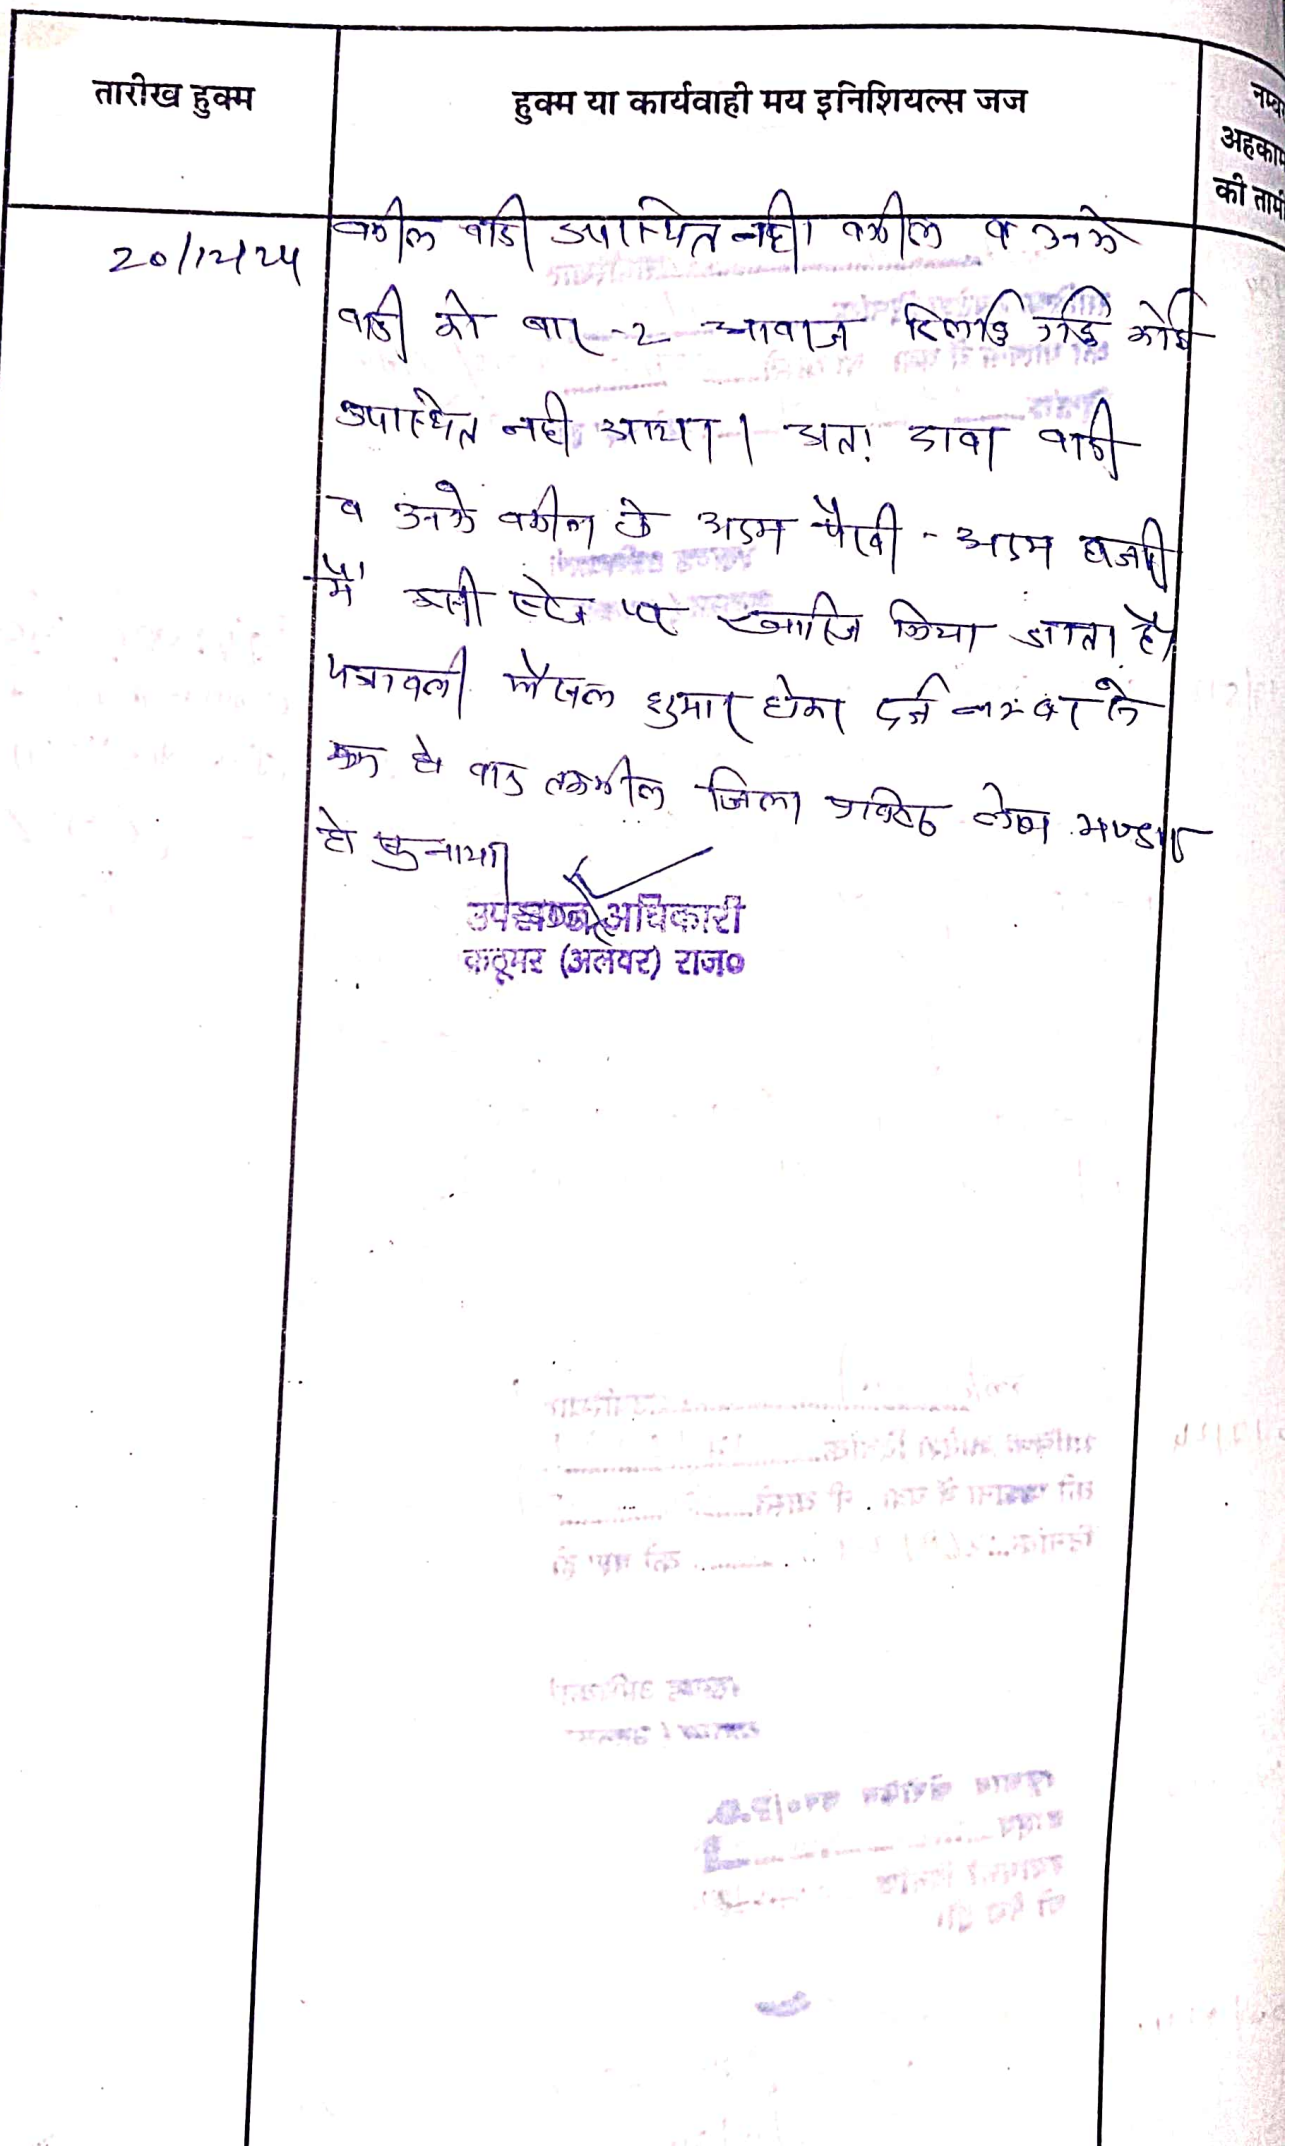 तारीख हुक्म
हुक्म या कार्यवाही मय इनिशियल्स जज
नम्ब
अहकाम
की तामी
20/12/24
वकील वादी उपस्थित नही। वकील व उनके
वादी को बार-2 आवाज दिलाई गई कोई
उपस्थित नही आया। अतः दावा वादी
व उनके वकील के अदम पैरवी - अदम हाजरी
में इसी स्टेज पर खारिज किया जाता है।
पत्रावली फैसल शुमार होकर दर्ज नम्बर से
कम हो बाद तकमील जिला लेख भण्डार
हो
उपखण्ड अधिकारी
कठूमर (अलवर) राज०